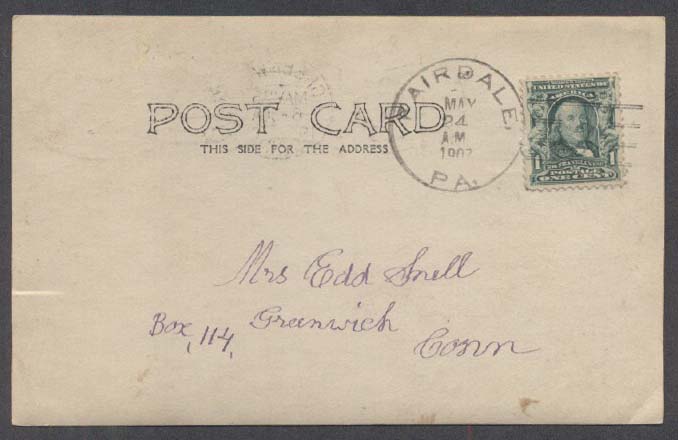 POST CARD
THIS SIDE FOR THE ADDRESS
FAIRDALE,
MAY
24
A.M.
1907
PA.
UNITED STATES OF AMERICA
1 1
POSTAGE
ONE CENT
Mrs Edd Snell
Box, 114, Greenwich
Conn